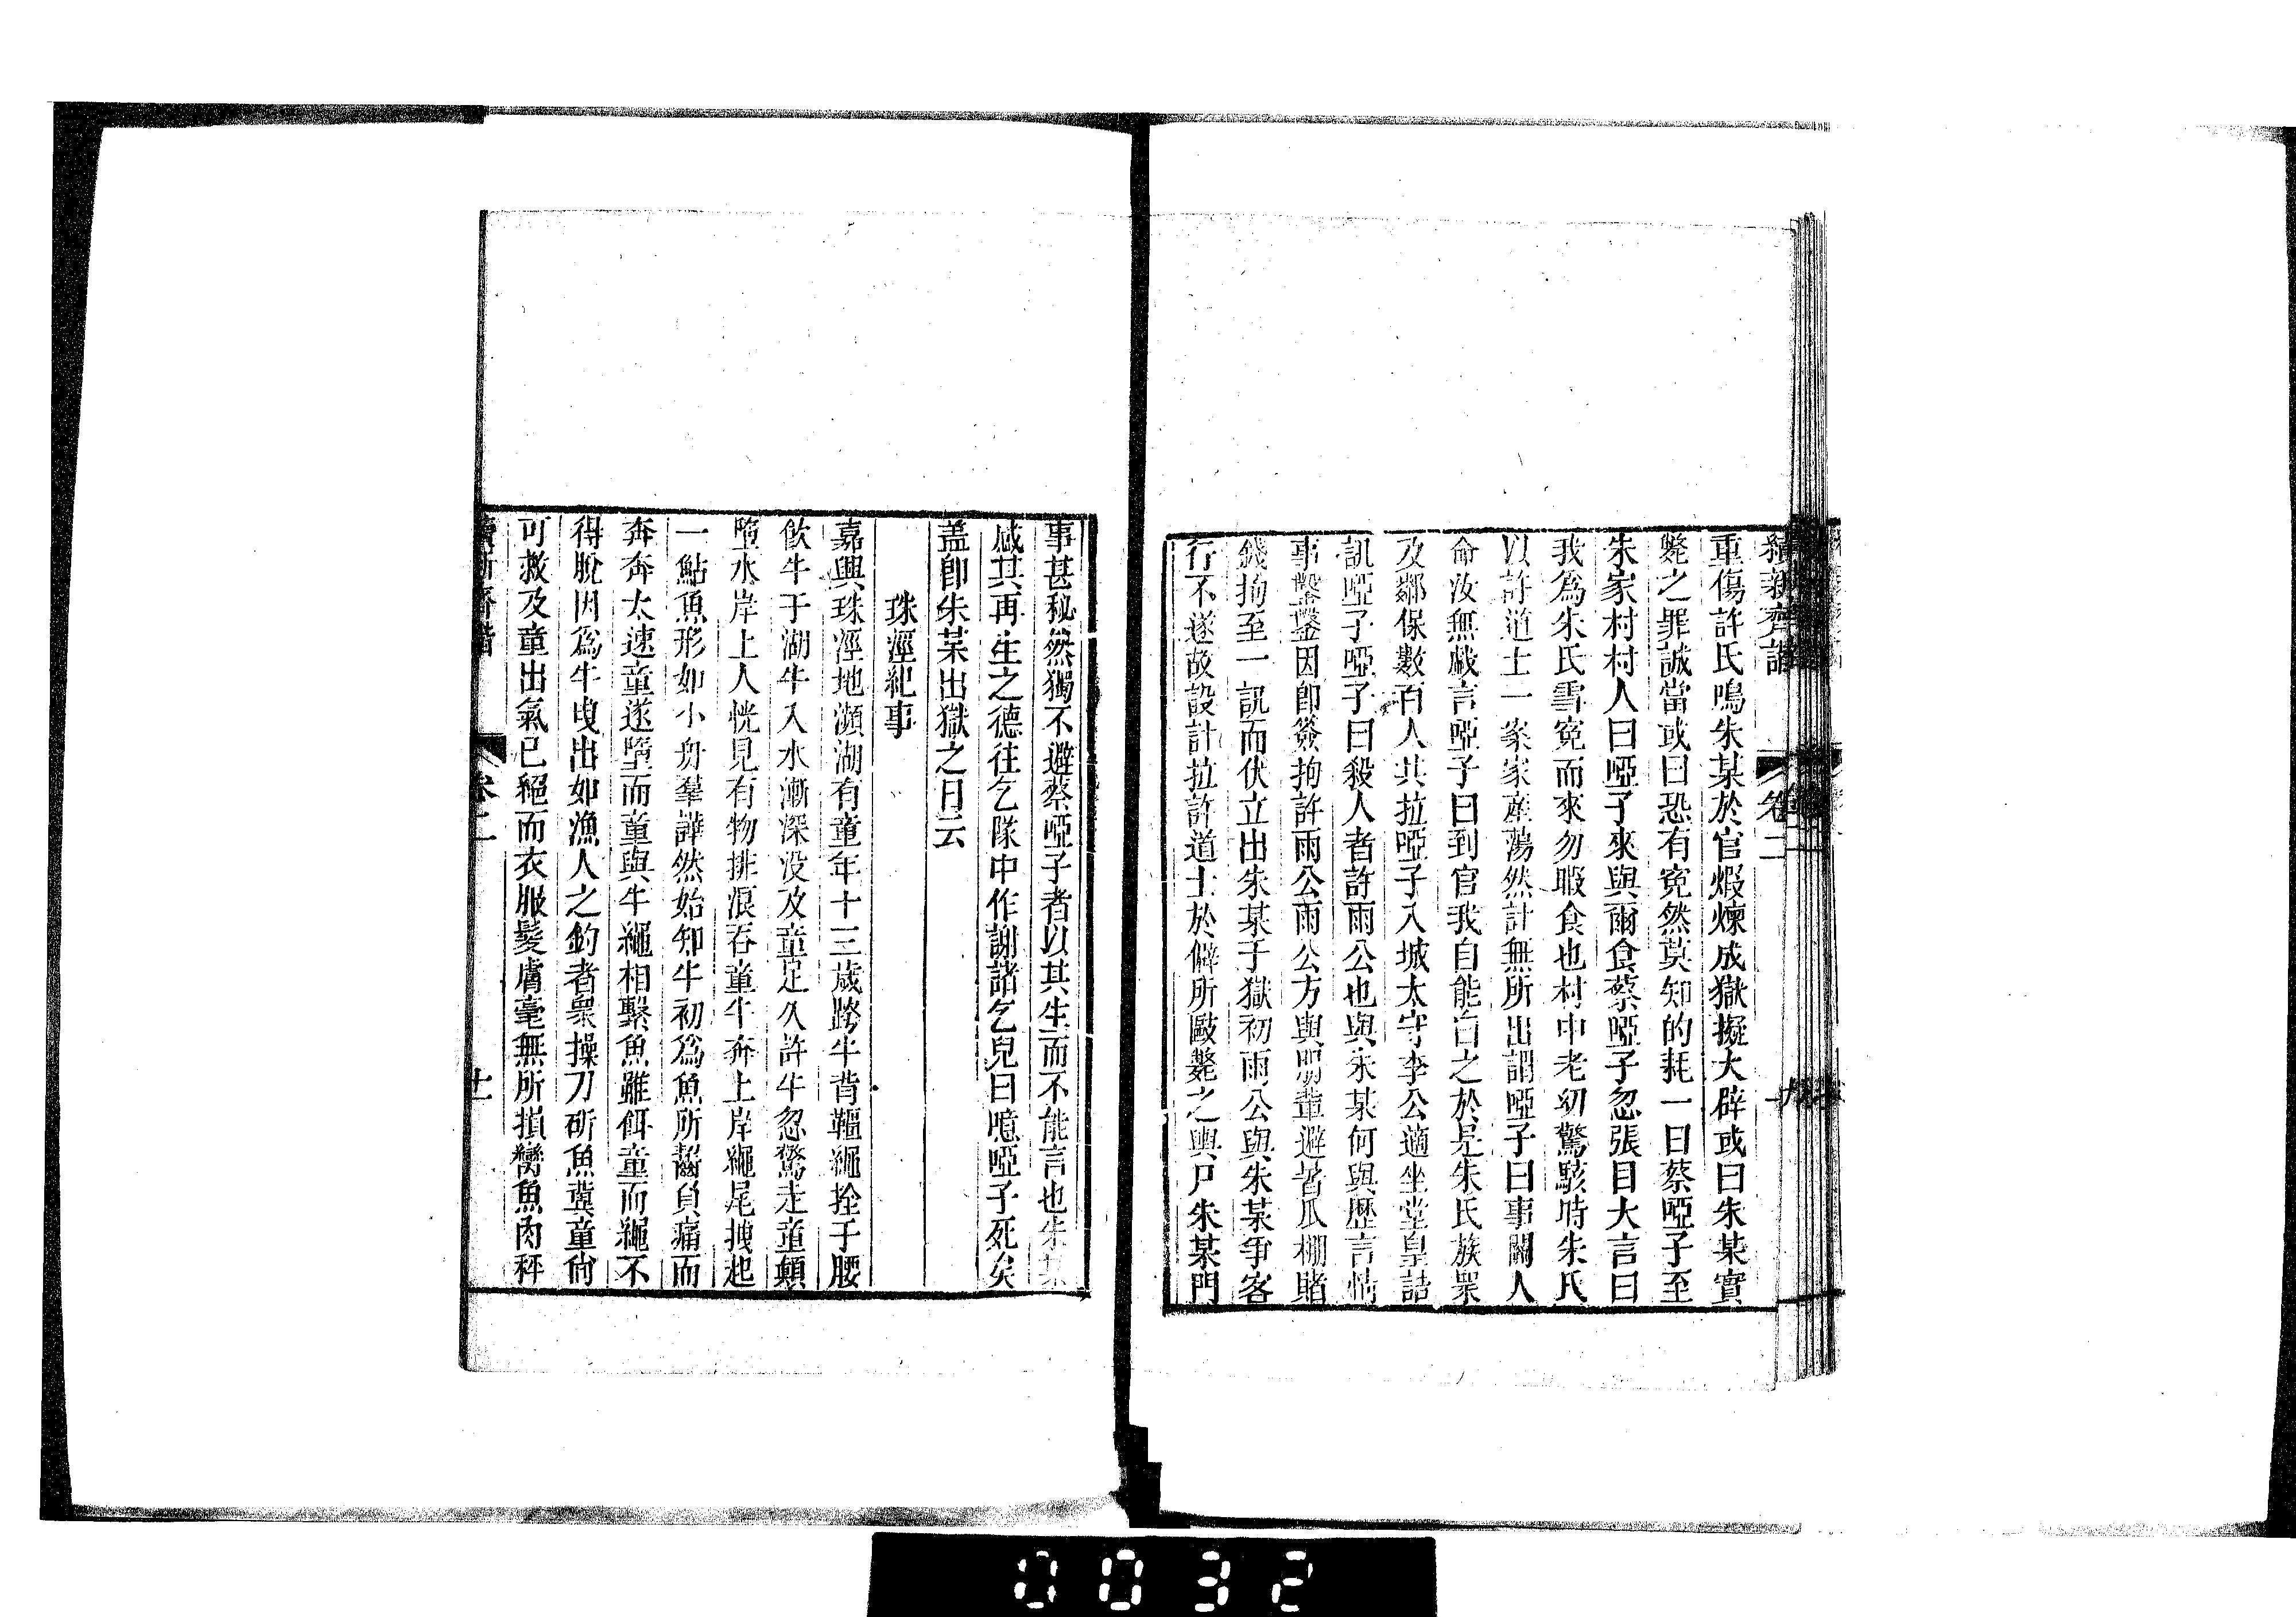 續新齊諧
卷二
重傷許氏鳴朱某於官煆煉成獄擬大辟或曰朱某實
斃之罪誠當或曰恐有寃然莫知的耗一日蔡啞子至
朱家村村人曰啞子來與爾食蔡啞子忽張目大言曰
我爲朱氏雪寃而來勿暇食也村中老幼驚駭時朱氏
以許道士一案家產蕩然計無所出謂啞子曰事關人
命汝無戲言啞子曰到官我自能白之於是朱氏族眾
及鄰保數百人共拉啞子入城太守李公適坐堂皇詰
訊啞子啞子曰殺人者許雨公也與朱某何與歷言情
事鑿鑿因卽簽拘許雨公雨公方與朋輩避暑瓜棚賭
錢拘至一訊而伏立出朱某于獄初雨公與朱某爭客
行不遂故設計拉許道士於僻所毆斃之輿尸朱某門
事甚秘然獨不避蔡啞子者以其生而不能言也朱某
感其再生之德往乞隊中作謝諸乞兒曰噫啞子死矣
蓋卽朱某出獄之日云
珠涇紀事
嘉興珠涇地瀕湖有童年十三歲跨牛背韁繩拴于腰
飲牛于湖牛入水漸深沒及童足久許牛忽驚走童顛
墮水岸上人恍見有物排浪吞童牛奔上岸繩尾拽起
一鮎魚形如小舟羣譁然始知牛初爲魚所齧負痛而
奔奔太速童遂墮而童與牛繩相繫魚雖餌童而繩不
得脫因爲牛曳出如漁人之釣者眾操刀斫魚冀童尙
可救及童出氣已絕而衣服髮膚毫無所損臠魚肉秤
續新齊諧
卷二
十一
0032